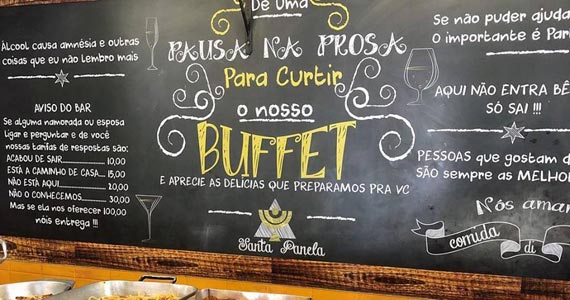 Álcool causa amnésia e outras
coisas que eu não lembro mais
AVISO DO BAR
Se alguma namorada ou esposa
Ligar e perguntar e de você
nossas tarifas de respostas são:
ACABOU DE SAIR 10,00
ESTÁ A CAMINHO DE CASA 15,00
NÃO ESTÁ AQUI 20,00
NÃO O CONHECEMOS 30,00
Mas se ela nos oferecer 100,00
nóis entrega !!!
De uma
PAUSA NA PROSA
Para Curtir
o nosso
BUFFET
E APRECIE AS DELÍCIAS QUE PREPARAMOS PRA VC
Santa Panela
Se não puder ajuda
O importante é
AQUI NÃO ENTRA
SÓ SAI !!!
PESSOAS que gostam
SÃO sempre as
Nós
comida di